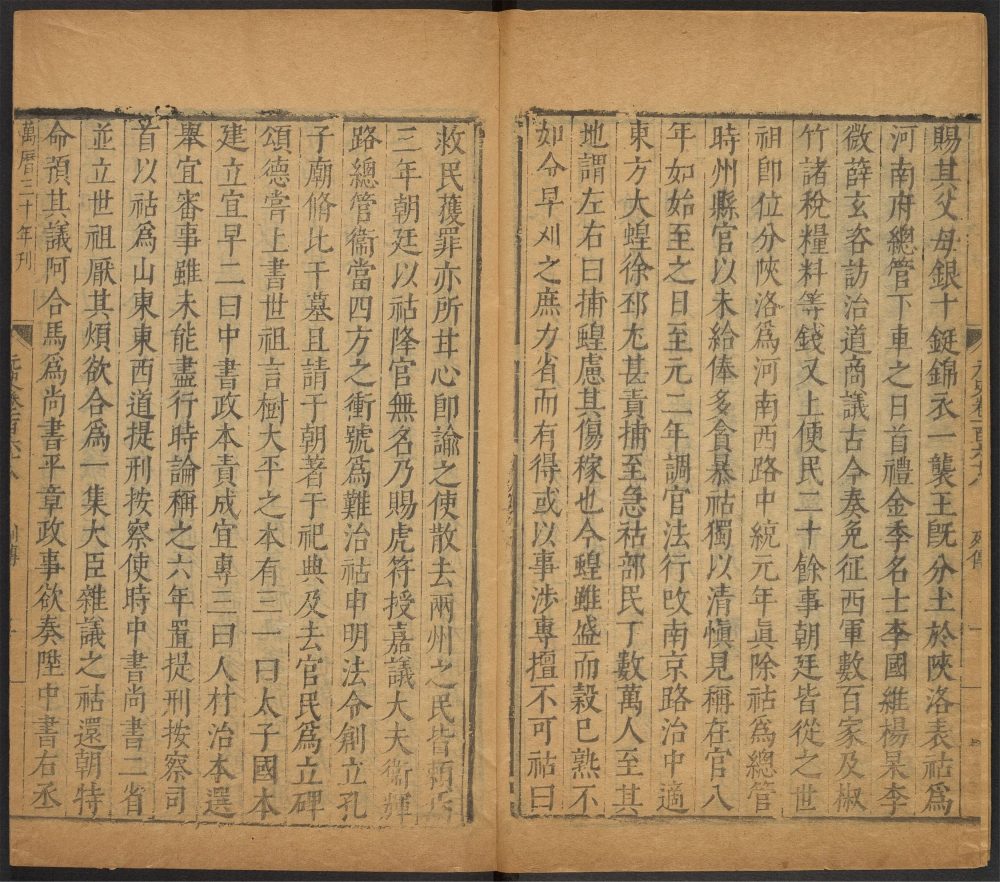 賜其父母銀十鋌錦衣一襲王旣分土於陝洛表祜爲
河南府總管下車之日首禮金季名士李國維楊杲李
微薛玄咨訪治道商議古今奏免征西軍數百家及椒
竹諸稅糧料等錢又上便民二十餘事朝廷皆從之世
祖卽位分陝洛爲河南西路中統元年眞除祜爲總管
時州縣官以未給俸多貪暴祜獨以清愼見稱在官八
年如始至之日至元二年調官法行改南京路治中適
東方大蝗徐邳尤甚責捕至急祜部民丁數萬人至其
地謂左右曰捕蝗慮其傷稼也今蝗雖盛而穀已熟不
如令早刈之庶力省而有得或以事涉專擅不可祜曰
救民獲罪亦所甘心卽諭之使散去兩州之民皆頼焉
三年朝廷以祜降官無名乃賜虎符授嘉議大夫衞輝
路總管衞當四方之衝號爲難治祜申明法令創立孔
子廟脩比干墓且請于朝著于祀典及去官民爲立碑
頌德嘗上書世祖言樹太平之本有三一曰太子國本
建立宜早二曰中書政本責成宜專三曰人材治本選
舉宜審事雖未能盡行時論稱之六年置提刑按察司
首以祜爲山東東西道提刑按察使時中書尚書二省
並立世祖厭其煩欲合爲一集大臣雜議之祜還朝特
命預其議阿合馬爲尚書平章政事欲奏陞中書右丞
萬曆三十年刊